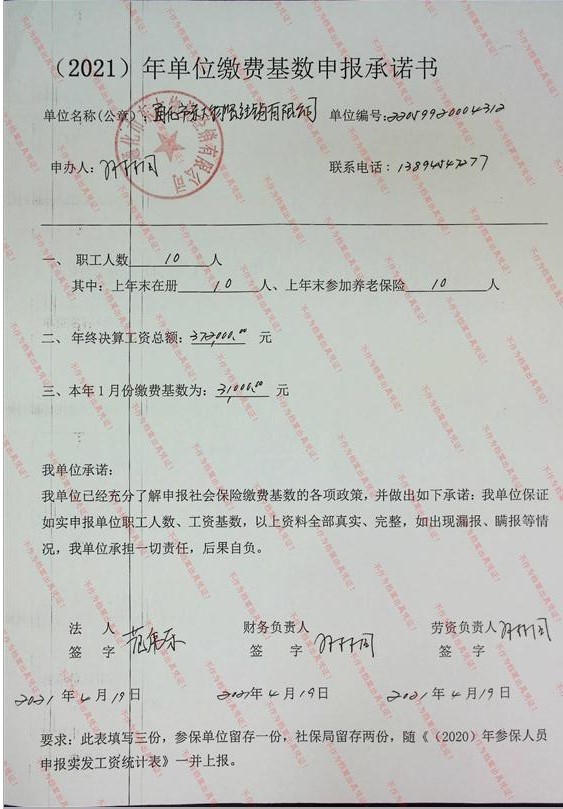 （2021）年单位缴费基数申报承诺书
单位名称(公章): 有限公司 单位编号:22059920004312
申办人: 联系电话:13894547277
一、 职工人数 10 人
其中: 上年末在册 10 人、上年末参加养老保险 10 人
二、年终决算工资总额: 372,000.00 元
三、本年1月份缴费基数为: 31,000.00 元
我单位承诺:
我单位已经充分了解申报社会保险缴费基数的各项政策，并做出如下承诺: 我单位保证
如实申报单位职工人数、工资基数，以上资料全部真实、完整，如出现漏报、瞒报等情
况，我单位承担一切责任，后果自负。
法 人 财务负责人 劳资负责人
签 字 签 字 签 字
2021 年 4 月 19 日 2021年 4 月 19 日 2021 年 4 月 19 日
要求: 此表填写三份，参保单位留存一份，社保局留存两份，随《（2020）年参保人员
申报实发工资统计表》一并上报。